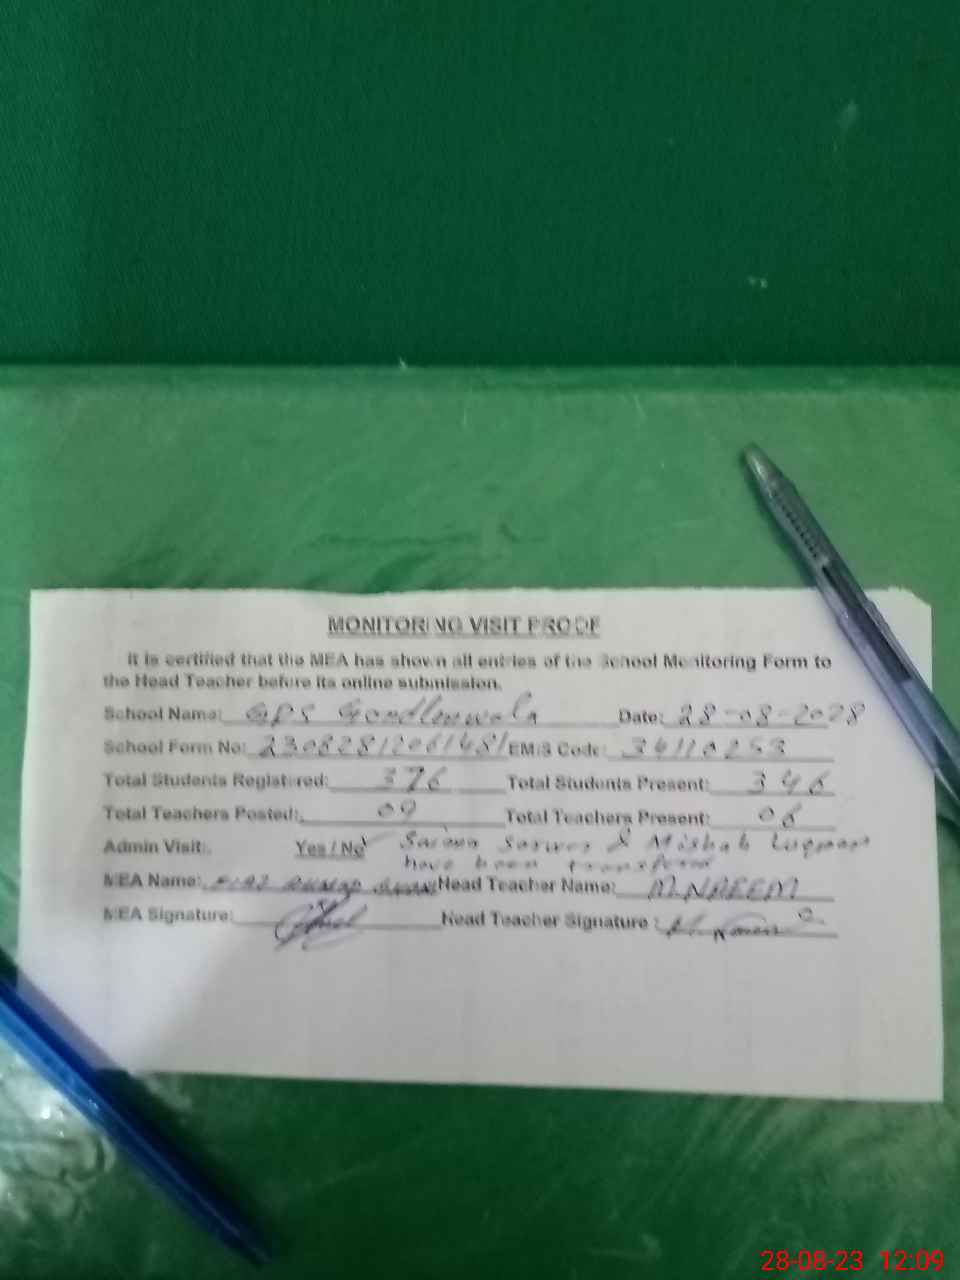 MONITORING VISIT PROOF
It is certified that the MEA has shown all entries of the School Monitoring Form to
the Head Teacher before its online submission.
School Name: GPS Date: 28-08-2028
School Form No: 23082812061481 EMIS Code: 34110253
Total Students Registered: 376 Total Students Present: 346
Total Teachers Posted: 09 Total Teachers Present: 06
Admin Visit: Yes / No Sarwar & Misbah Luqman
have been transfered
MEA Name: Head Teacher Name: M. NAEEM
MEA Signature: Head Teacher Signature :
28-08-23 12:09